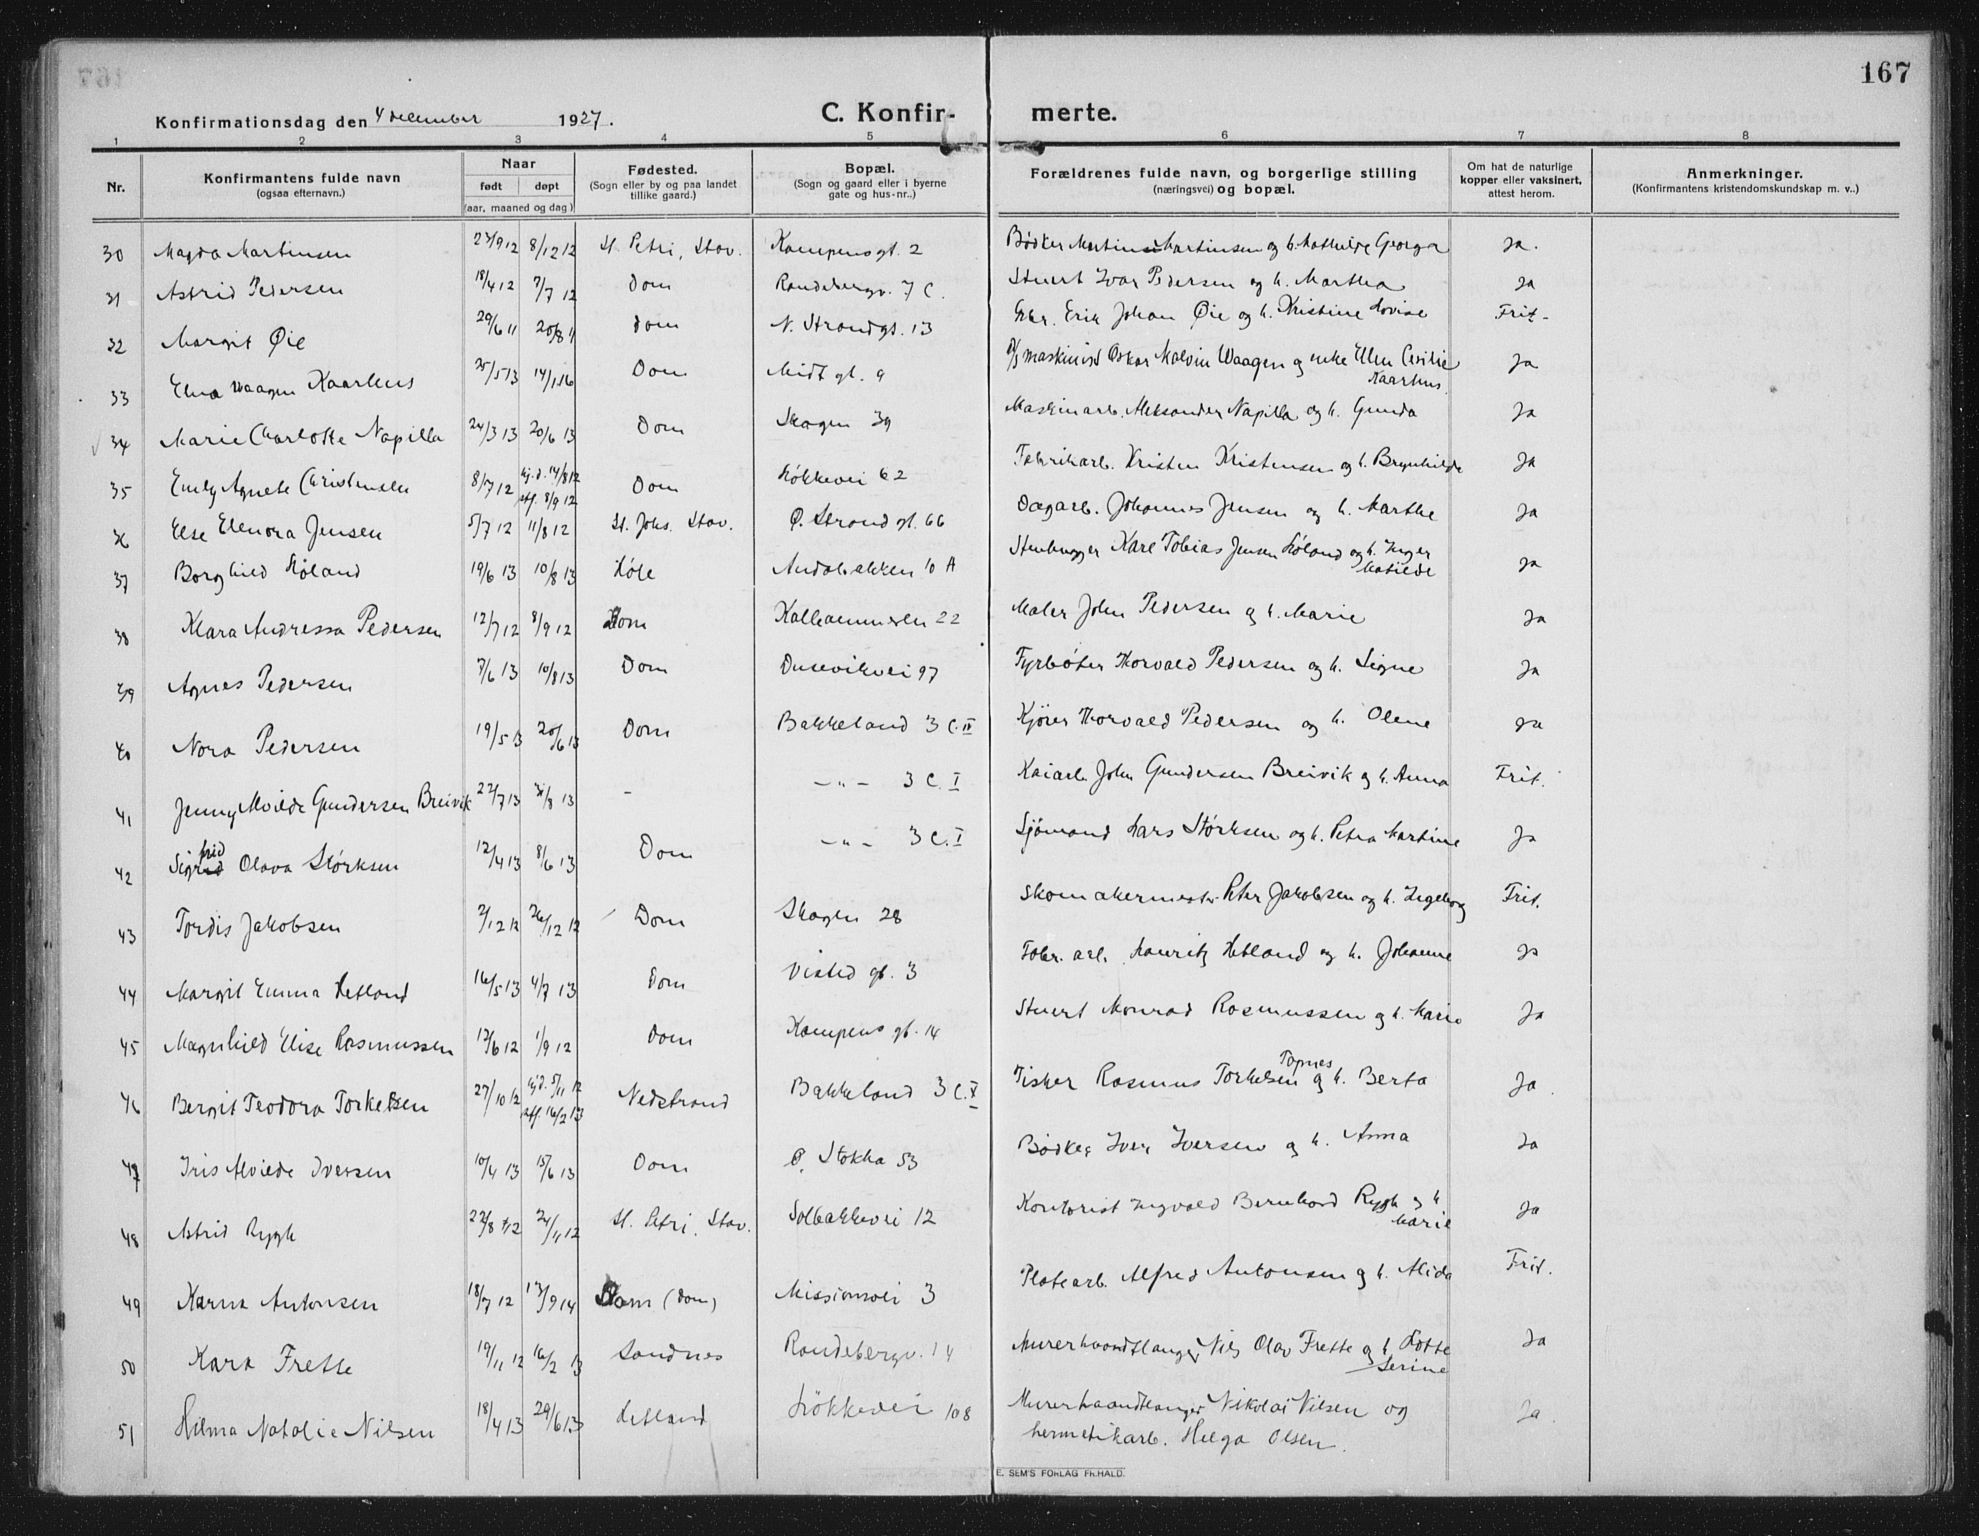 167
Konfirmationsdag den 4 december 1927.
C. Konfirmerte.
1 2 3 4 5 6 7 8
Nr. Konfirmantens fulde navn (ogsaa efternavn.) Naar født døpt (aar, maaned og dag) Fødested. (Sogn eller by og paa landet tillike gaard.) Bopæl. (Sogn og gaard eller i byerne gate og hus-nr..) Forældrenes fulde navn, og borgerlige stilling (næringsvei) og bopæl. Om hat de naturlige kopper eller vaksinert, attest herom. Anmerkninger. (Konfirmantens kristendomskundskap m. v..)
30 Magda Martinsen 27/9 12 8/12 12 St. Petri, Stav. Kampensgt. 2 Bødker Martin Martinsen og h. Mathilde Georga Ja.
31 Astrid Pedersen 18/4 12 7/7 12 Dom Randebergv. 7 C. Stuert Ivar Pedersen og h. Martha Ja
32 Margit Øie 29/6 11 20/8 11 Dom N. Strandgt. 13 Erik Johan Øie og h. Kristine Lovise Frit-
33 Elna Waagen Kaarhus 25/5 13 14/1 16 Dom Midtgt. 9 maskinist Oskar Malvin Waagen og enke Ellen Cecilie Kaarhus Ja
34 Marie Charlotte Napilla 24/3 13 20/6 13 Dom Skagen 39 Maskinarb. Aleksander Napilla og h. Gunda Ja
35 Emly Agnete Christensen 8/7 12 hj.d. 14/8 12 stf. 8/9 12 Dom Løkkevei 62 Fabrikarb. Kristen Kristensen og h. Brynhilde Ja
36 Else Elenora Jensen 5/7 12 11/8 12 St. Johs. Stav. Ø. Strandgt. 66 Dagarb. Johannes Jensen og h. Marthe Ja
37 Borghild Høland 19/6 13 10/8 13 Høle Andabakken 10 A Stenhugger Karl Tobias Jensen Høland og h. Inger Matilde Ja
38 Klara Andressa Pedersen 12/7 12 8/9 12 Dom Kalhammeren 22 Maler John Pedersen og h. Marie Ja
39 Agnes Pedersen 7/6 13 10/8 13 Dom Dusevikvei 97 Fyrbøter Thorvald Pedersen og h. Signe Ja
40 Nora Pedersen 19/5 13 20/6 13 Dom Bakkeland 3 C. II Kjører Thorvald Pedersen og h. Olene Ja
41 Jenny Alvilde Gundersen Breivik 22/7 13 31/8 13 - -"- 3 C. I Kaiarb. John Gundersen Breivik og h. Anna Frit.
42 Sigfrid Olava Størksen 12/4 13 8/6 13 Dom -"- 3 C. I Sjømand Lars Størksen og h. Petra Martine Ja
43 Tordis Jakobsen 2/12 12 26/12 12 Dom Skagen 28 Skomakermester Peter Jakobsen og h. Ingeborg Frit.
44 Margit Emma Hetland 16/5 13 4/7 13 Dom Vistedgt. 3 Fabr. arb. Lauritz Hetland og h. Johanne Ja
45 Magnhild Elise Rasmussen 12/6 12 1/9 12 Dom Kampensgt. 14 Stuert Monrad Rasmussen og h. Marie Ja
46 Bergit Teodora Torkelsen 27/10 12 hj.d. 5/11 12 stf. 16/2 13 Nedstrand Bakkeland 3 C. V Fisker Rasmus Torkelsen Topnes og h. Berta Ja
47 Iris Alvilde Iversen 10/4 13 15/6 13 Dom Ø. Stokka 53 Bødker Iver Iversen og h. Anna Ja
48 Astrid Rygh 22/8 12 24/11 12 St. Petri. Stav. Solbakkevei 12 Kontorist Ingvald Bernhard Rygh og h. Marie Ja
49 Karna Antonsen 18/7 12 13/9 14 Dom (Dom) Missionsvei 3 Platearb. Alfred Antonsen og h. Alida Frit.
50 Kara Frette 19/11 12 16/2 13 Sandnes Randebergv. 14 Murerhaandtlanger Nils Olav Frette og h. Lotte Serine Ja
51 Hilma Natalie Nilsen 18/4 13 29/6 13 Hetland Løkkevei 108 Murerhaandtlanger Nikolai Nilsen og hermetikarb. Helga Olsen. Ja
E. SEM'S FORLAG FR.HALD.